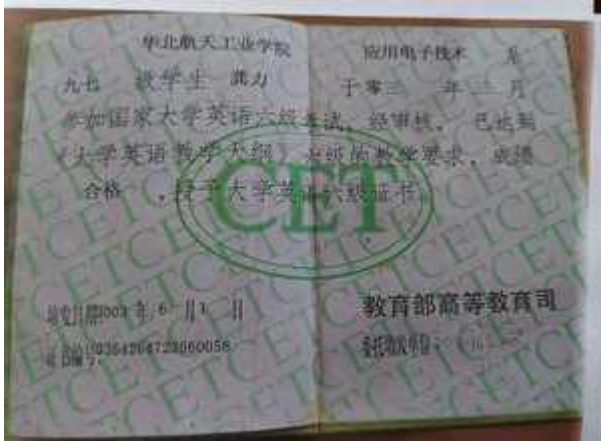 华北航天工业学院 应用电子技术 系
九七 级学生 龚力 于零三 年 三 月
参加国家大学英语六级考试, 经审核, 已达到
《大学英语教学大纲》六级的教学要求, 成绩
合格 , 授予大学英语六级证书。
CET
填发日期 2003 年 6 月 1 日 教育部高等教育司
证书编号: 委托填发单位: